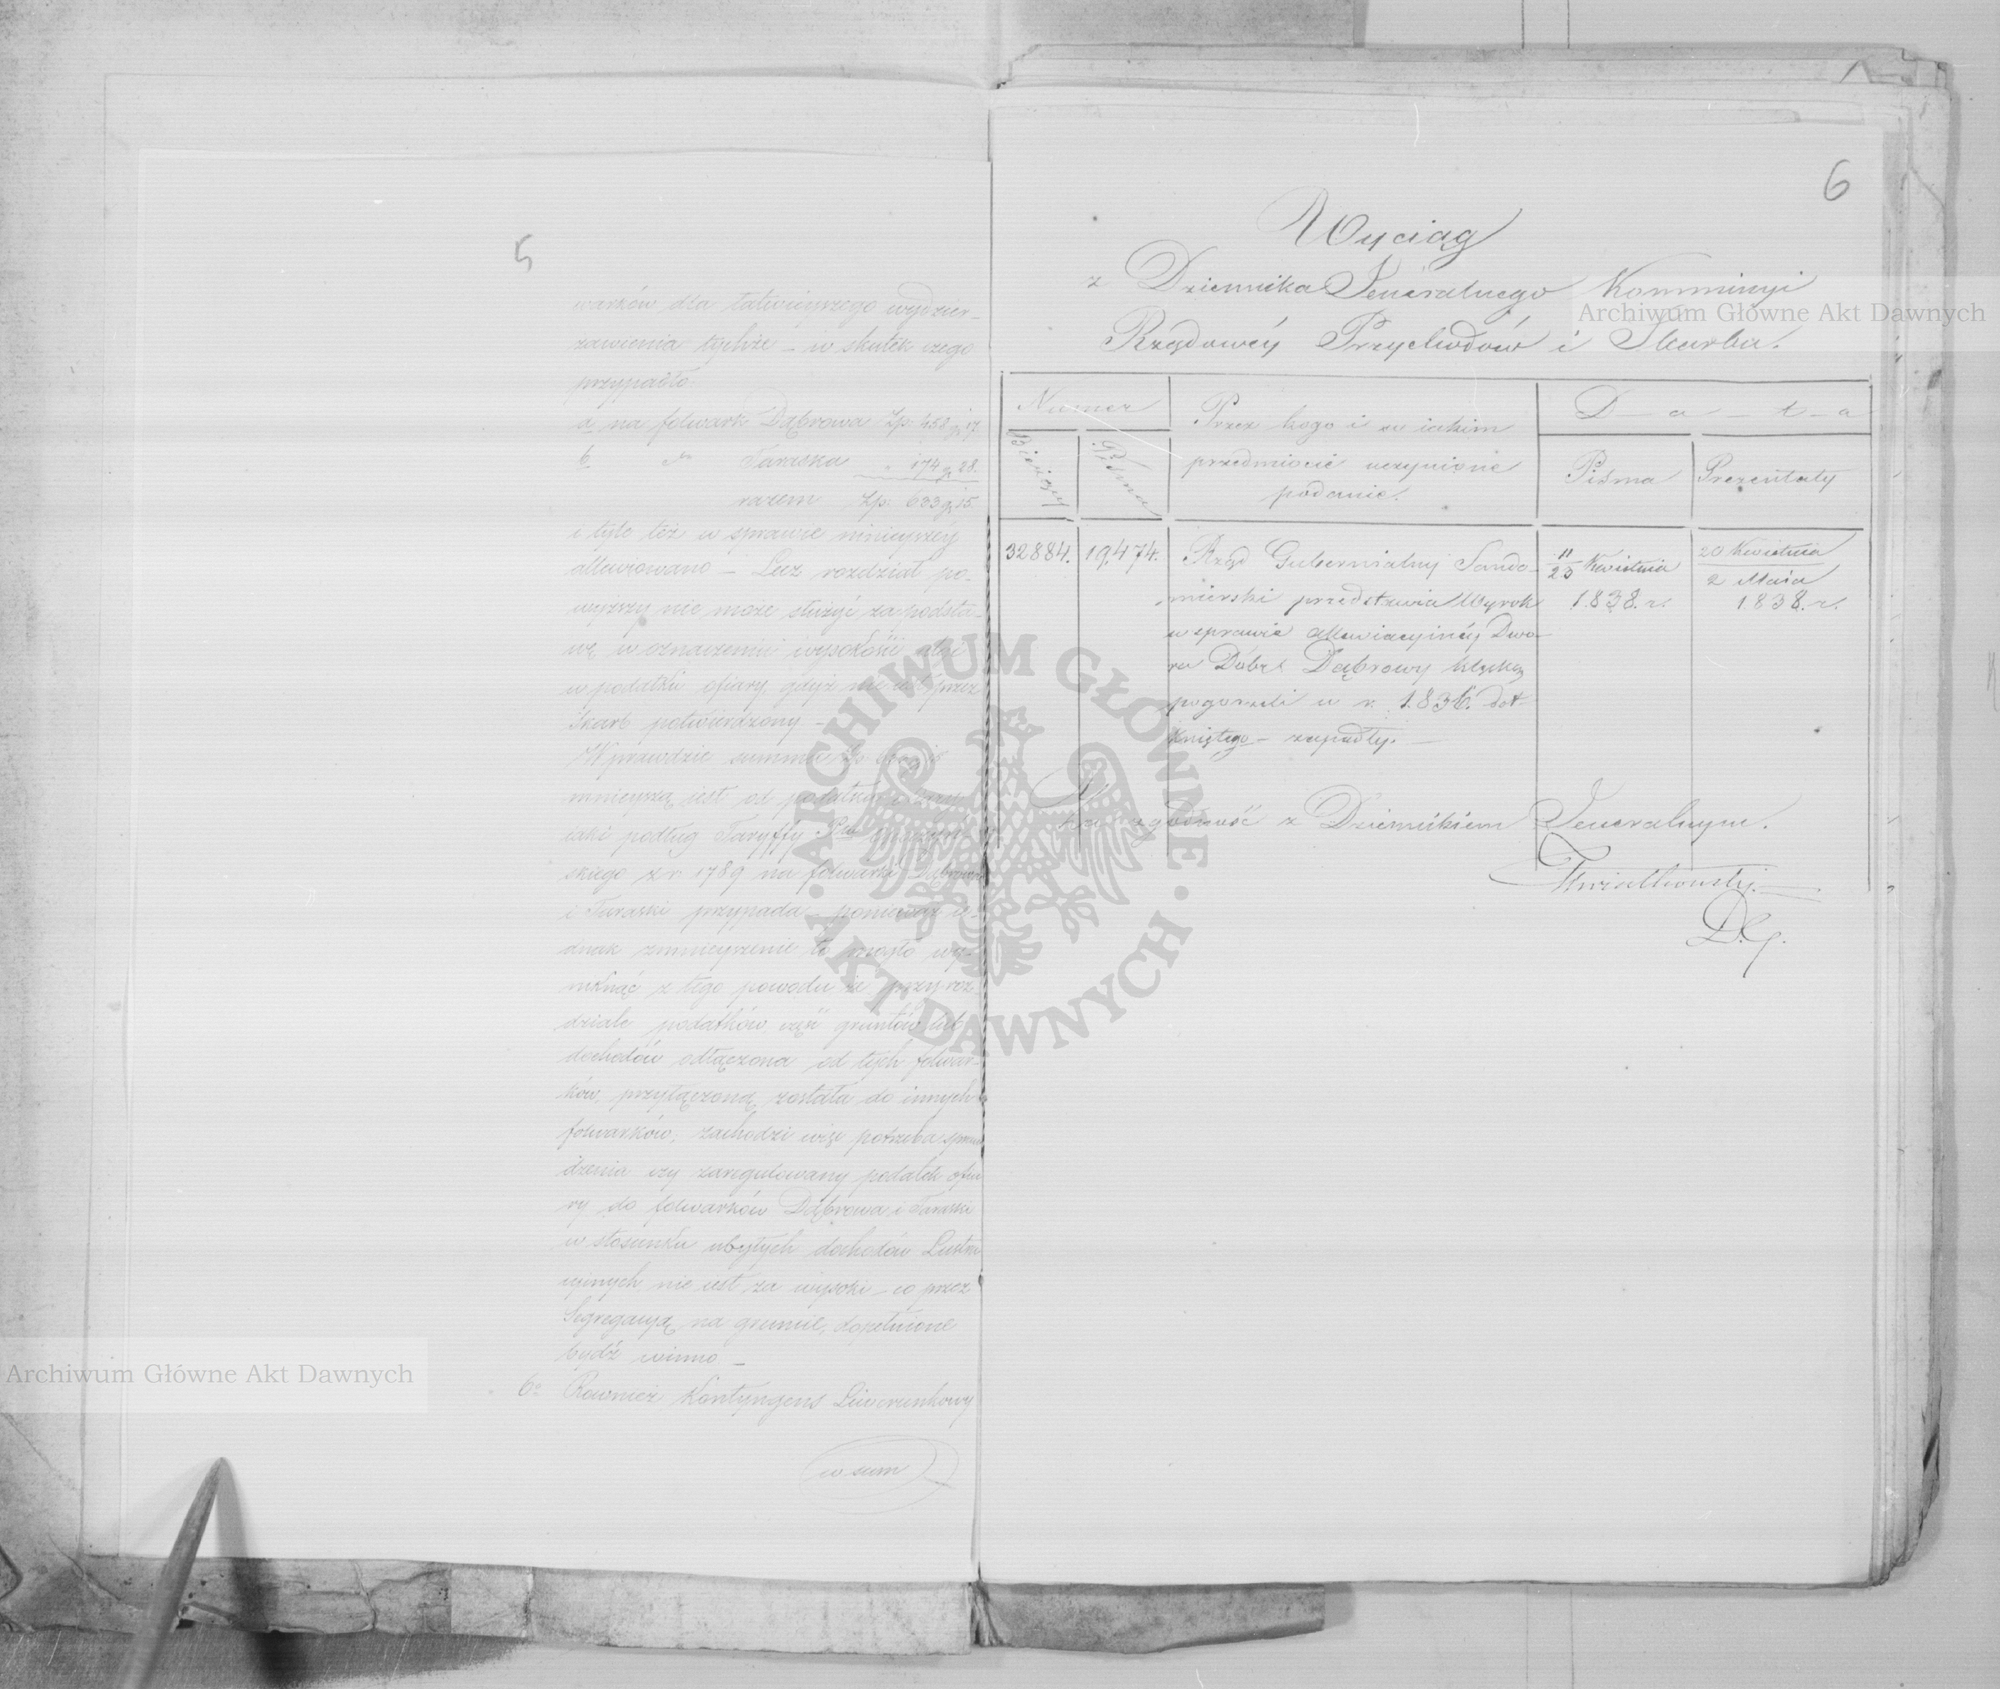 5
warków dla łatwieyszego wydzier-
żawienia tychże – w skutek czego
przypadło
a na folwark Dąbrowa Zp. 458 g 17.
b dto Taraska " 174 g 28.
razem Zp: 633 g 15.
i tyle też w sprawie ninieyszéy
allewiowano – Lecz rozdział po-
wyższy nie może służyć za podsta-
wę w oznaczeniu wysokości ulgi
w podatku ofiary gdyż nie iest przez
Skarb potwierdzony –
Wprawdzie summa Zp.
mnieyszą iest od podatku
iaki podług Taryffy
skiego z r. 1789 na folwarki Dąbrowa
i Taraski przypada – ponieważ ie-
dnak zmnieyszenie to mogło wy-
niknąć z tego powodu że przy roz-
dziale podatków część gruntów lub
dochodów odłączona od tych folwar-
ków, przyłączoną została do innych
folwarków, zachodzi więc potrzeba spraw-
dzenia czy zaregulowany podatek ofia
ry do folwarków Dąbrowa i Taraski
w stosunku ubytych dochodów Lustra
cyjnych nie iest za wysoki – co przez
Segregacyą na gruncie, dopełnione
bydź winno –
6o Rownież Kontyngens Liwerunkowy
w sum
6
Wyciąg
z Dziennika Jeneralnego Kommissyi
Rządowéy Przychodów i Skarbu.
Numer
Bieżący
Pisma
Przez kogo i w iakim
przedmiocie uczynione
podanie.
D – a – t – a
Pisma
Prezentaty
32884.
19.474.
Rząd Gubernialny Sando-
mierski przedstawia Wyrok
w sprawie allewiacyinéy Dwo-
ru Dóbr Dąbrowy klęską
pogorzeli w r. 1.836. dot-
kniętego – zapadły. –
11/23 Kwietnia
1.838. r.
20 Kwietnia
2 Maia
1.838. r.
Za zgodność z Dziennikiem Jeneralnym.
Kwiatkowski. –
D.G.
Archiwum Główne Akt Dawnych
Archiwum Główne Akt Dawnych
ARCHIWUM GŁÓWNE · AKT DAWNYCH ·